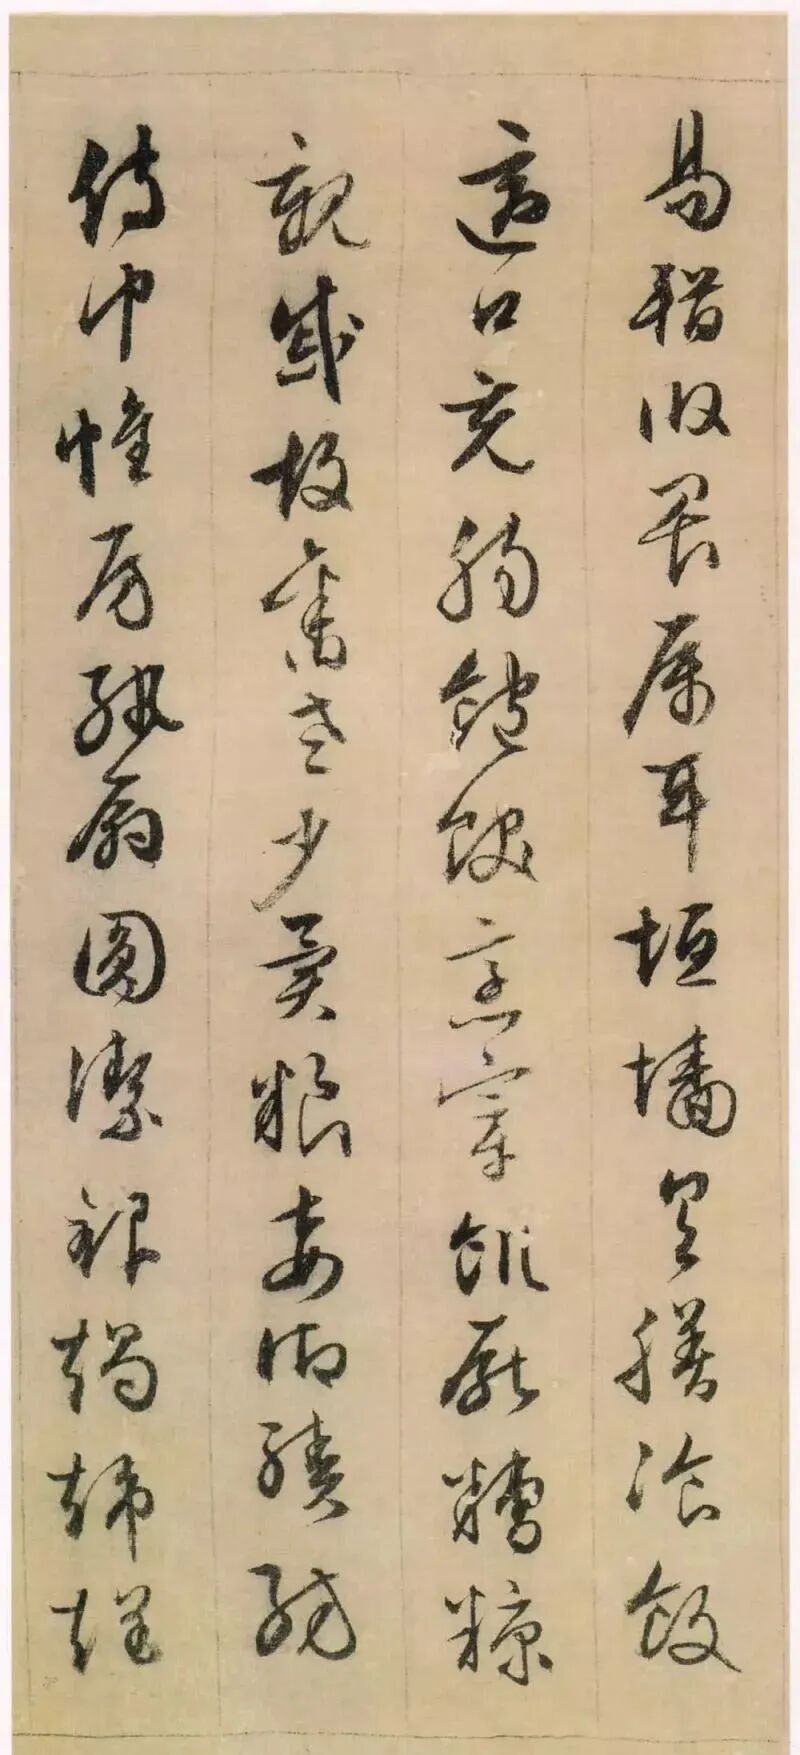 易輶攸畏属耳垣墻具膳飡飯
適口充腸飽飫烹宰飢厭糟糠
親戚故舊老少異粮妾御績紡
侍巾帷房紈扇圓潔銀燭煒煌